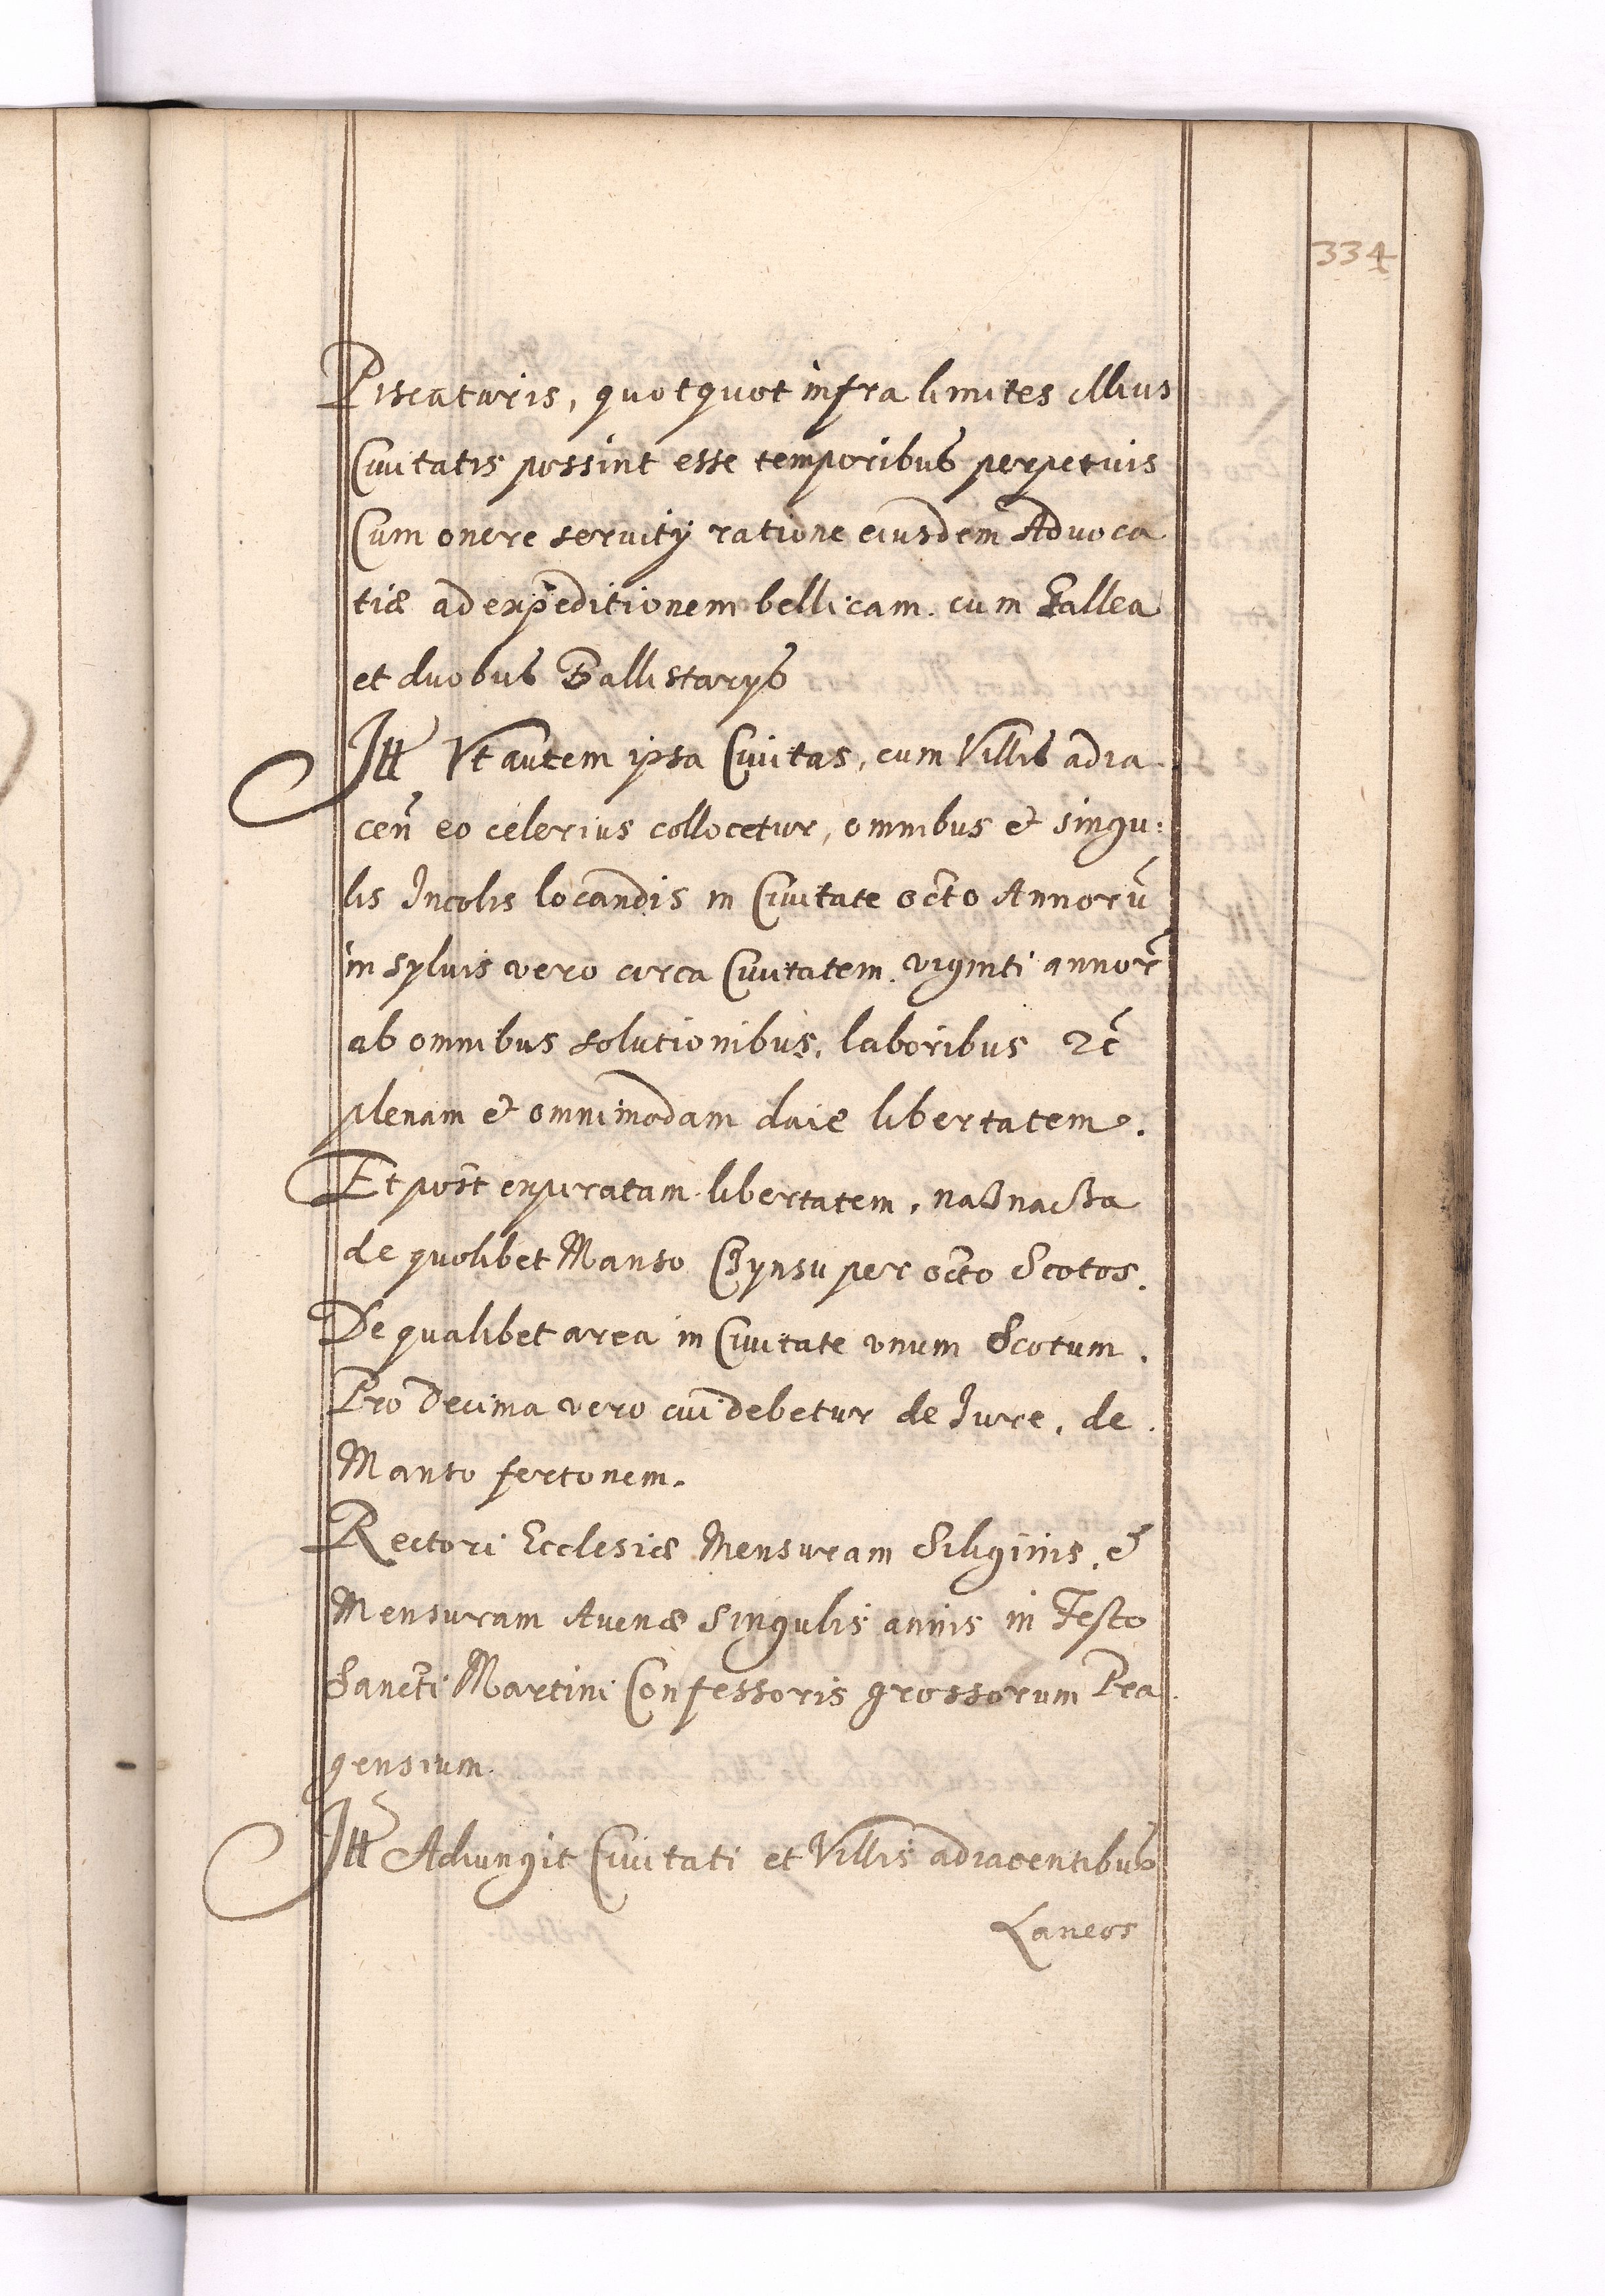 334
Piscaturis, quotquot infra limites illius
Civitatis possint esse temporibus perpetuis
Cum onere servitÿ ratione eiusdem Advoca
tiæ ad expeditionem bellicam cum Fallea
et duobus Ballistarÿs
Itt Vt autem ipsa Civitas, cum Villis adia
ceñ eo celerius collocetur, omnibus et singu:
lis Incolis locandis in Civitate octo Annorũ
in sylvis vero circa Civitatem viginti annor̃
ab omnibus solutionibus, laboribus ꝛc̃
plenam et omnimodam daie libertatem.
Et post expiratam libertatem, naßnacza
de quolibet Manso Czynsu per octo Scotos.
De qualibet area in Civitate vnum Scotum.
Pro Decima vero cui debetur de Iure, de
Manso fertonem.
Rectori Ecclesiæ Mensuram Siliginis, et
Mensuram Avenæ singulis annis in Festo
Sancti Martini Confessoris grossorum Pra
gensium.
Itt Adiungit Civitati et Villis adiacentibus
Laneos